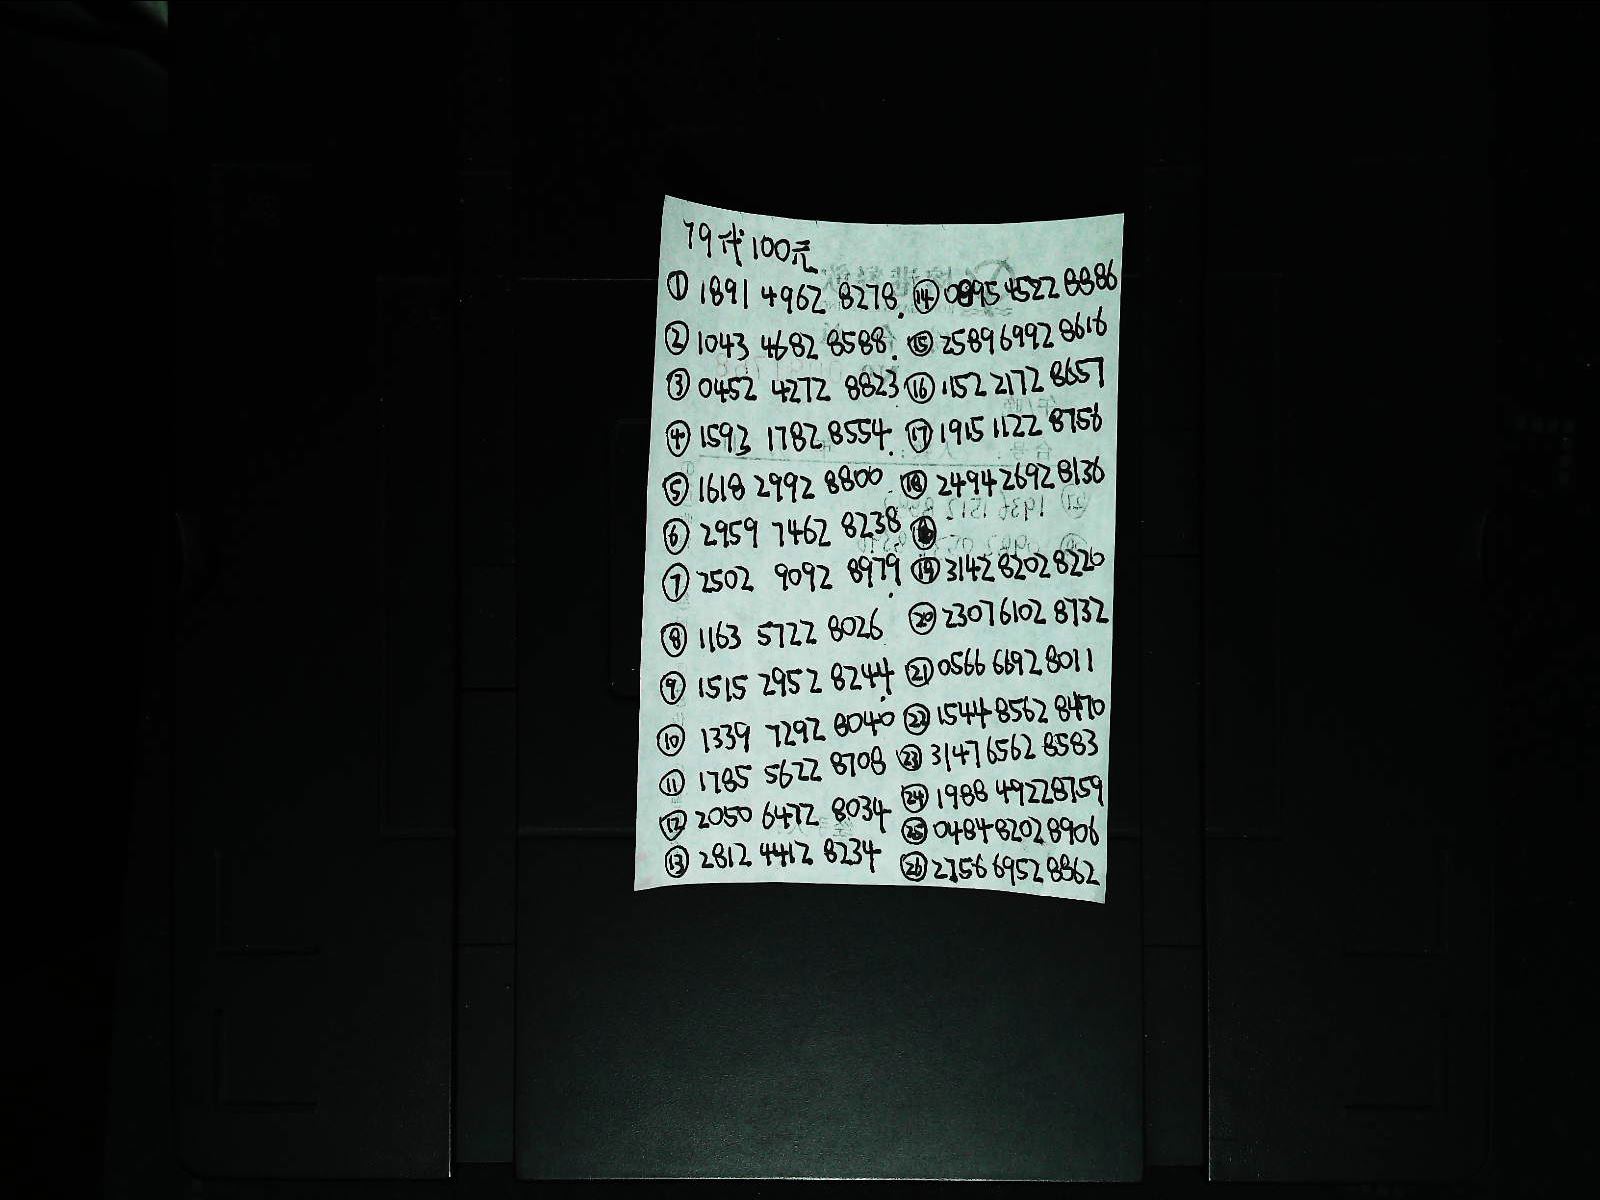 79代100元
① 1891 4962 8278.
② 1043 4682 8588.
③ 0452 4272 8823
④ 1592 1782 8554.
⑤ 1618 2992 8800
⑥ 2959 7462 8238
⑦ 2502 9092 8979.
⑧ 1163 5722 8026
⑨ 1515 2952 8244.
⑩ 1339 7292 8040
⑪ 1785 5622 8708
⑫ 2050 6472 8034
⑬ 2812 4412 8234
⑭ 0895 4522 8886
⑮ 2589 6992 8616
⑯ 1152 2172 8657
⑰ 1915 1122 8756
⑱ 2494 2692 8136
⑲ 3142 8202 8220
⑳ 2307 6102 8732
㉑ 0566 6692 8011
㉒ 1544 8562 8470
㉓ 3147 6562 8583
㉔ 1988 4922 8759
㉕ 0484 8202 8906
㉖ 2356 6952 8862